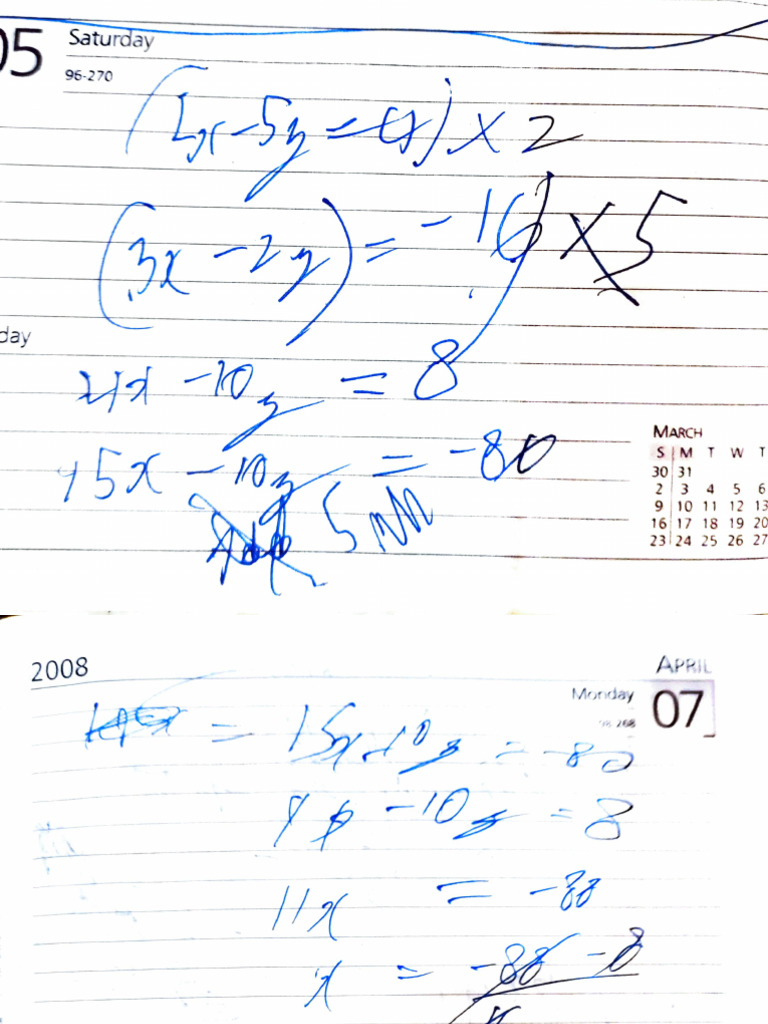 05 Saturday
96-270
(2x - 5y = 4) × 2
(3x - 2y) = -16) × 5
day
4x - 10y = 8
15x - 10y = -80
MARCH
S M T W T
30 31
2 3 4 5 6
9 10 11 12 13
16 17 18 19 20
23 24 25 26 27
2008
APRIL
Monday 07
98-268
= 15x - 10y = -80
4x - 10y = 8
11x = -88
x = -88 -8